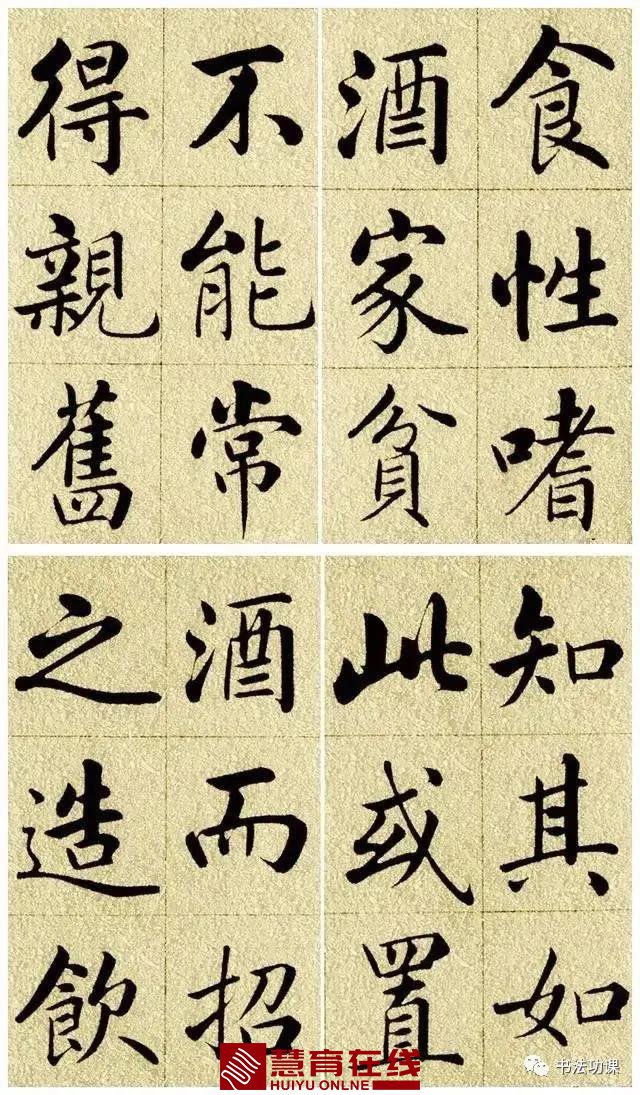 食性嗜
酒家貧
不能常
得親舊
知其如
此或置
酒而招
之造飲
慧育在线
HUIYU ONLINE
书法功课